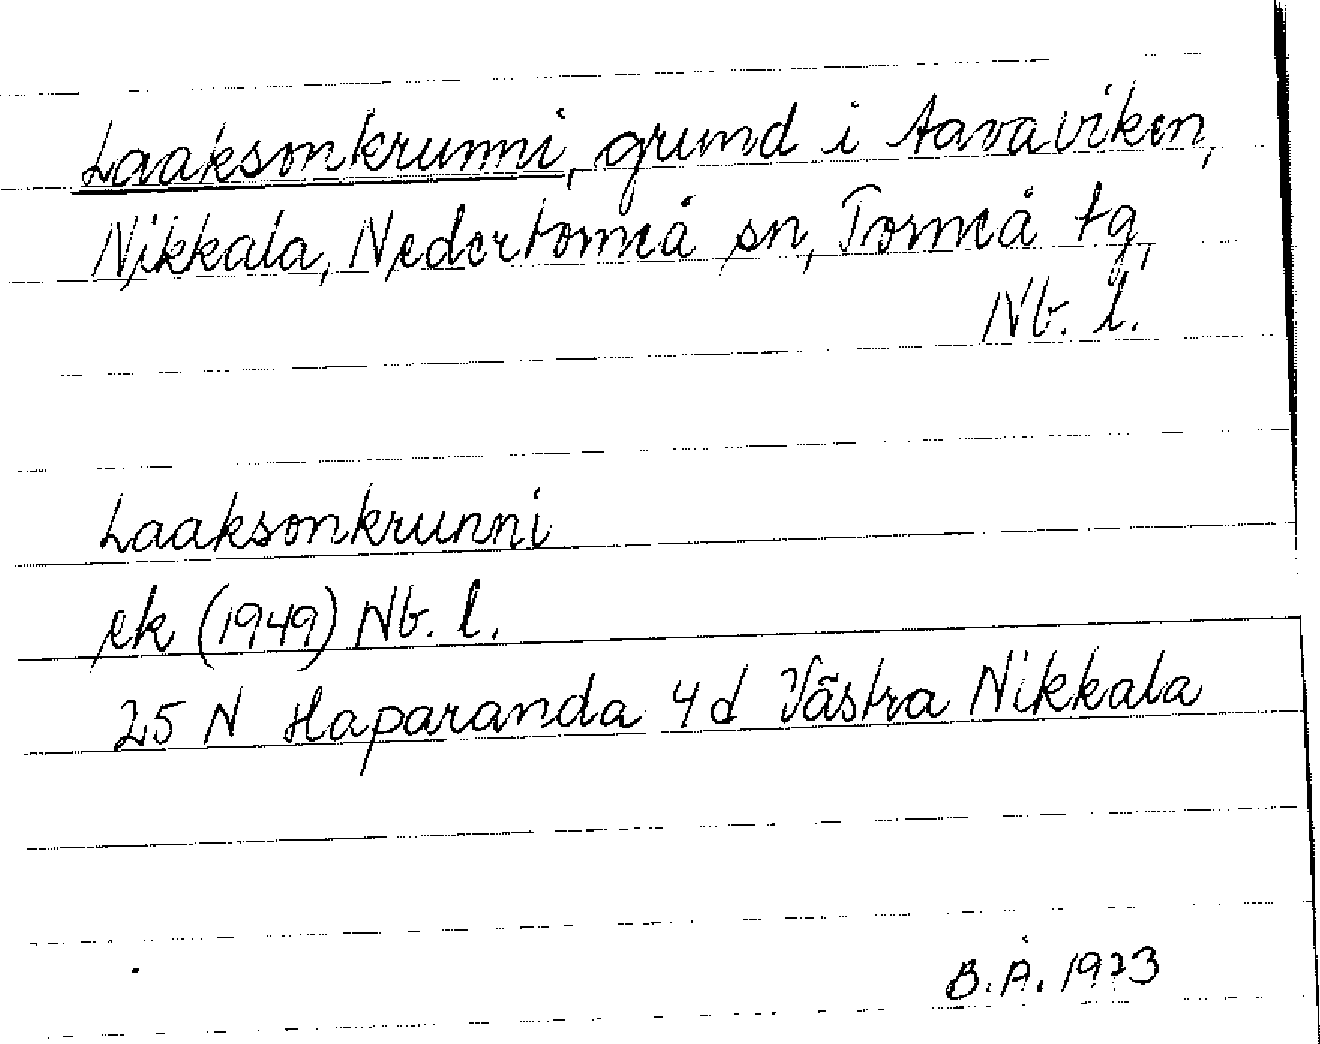 Laaksonkrunni, grund i Aavaviken,
Nikkala, Nedertorneå sn, Torneå tg,
Nb. l.
Laaksonkrunni
ek (1949) Nb. l.
25 N Haparanda 4d Västra Nikkala
B.Å. 1973